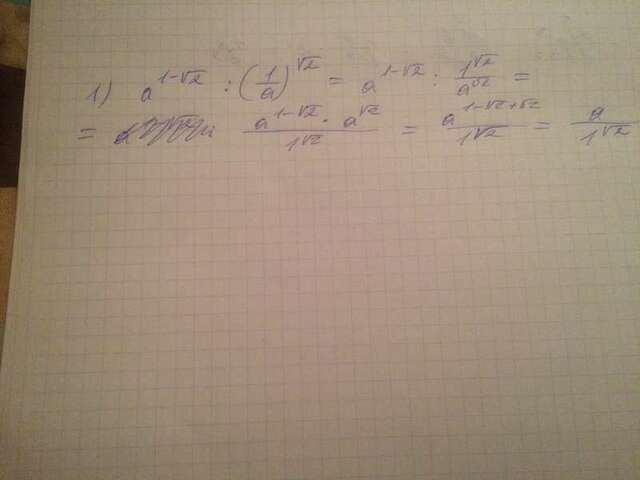 1) a^{1-√2} : (1/a)^{√2} = a^{1-√2} : 1^{√2}/a^{√2} =
= a^{1-√2} · a^{√2}/1^{√2} = a^{1-√2+√2}/1^{√2} = a/1^{√2}